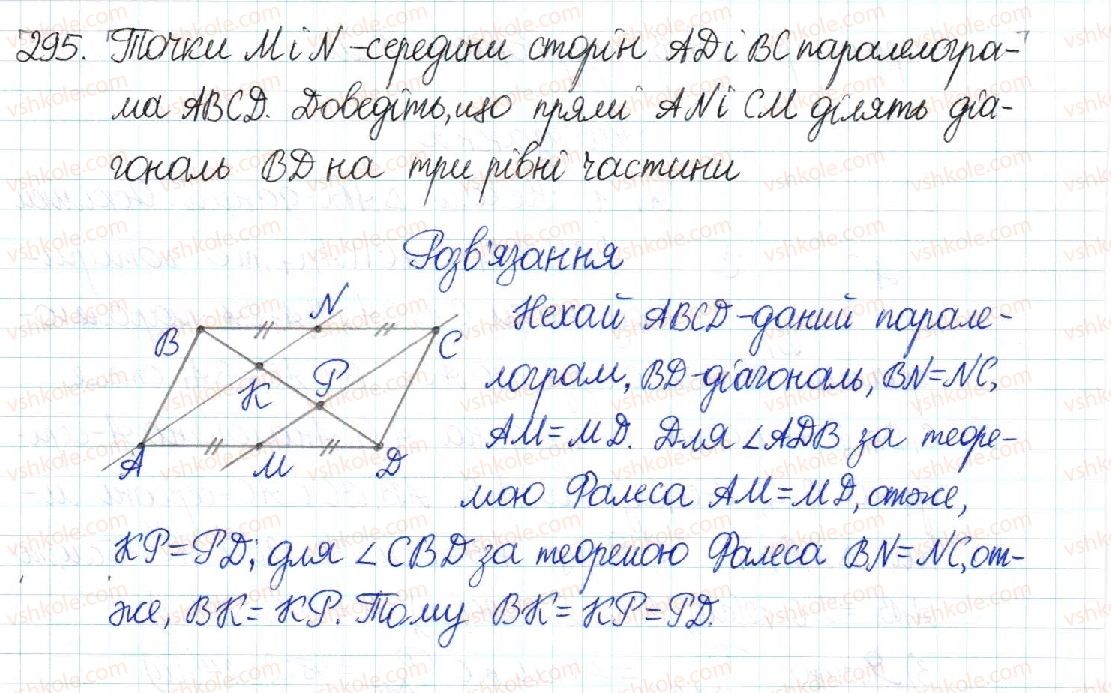 295. Точки M і N - середини сторін AD і BC паралелогра-
ма ABCD. Доведіть, що прямі AN і CM ділять діа-
гональ BD на три рівні частини
Розв'язання
B N C
K P
A M D
Нехай ABCD - даний парале-
лограм, BD - діагональ, BN = NC,
AM = MD. Для ∠ADB за теоре-
мою Фалеса AM = MD, отже,
KP = PD; для ∠CBD за теоремою Фалеса BN = NC, от-
же, BK = KP. Тому BK = KP = PD.